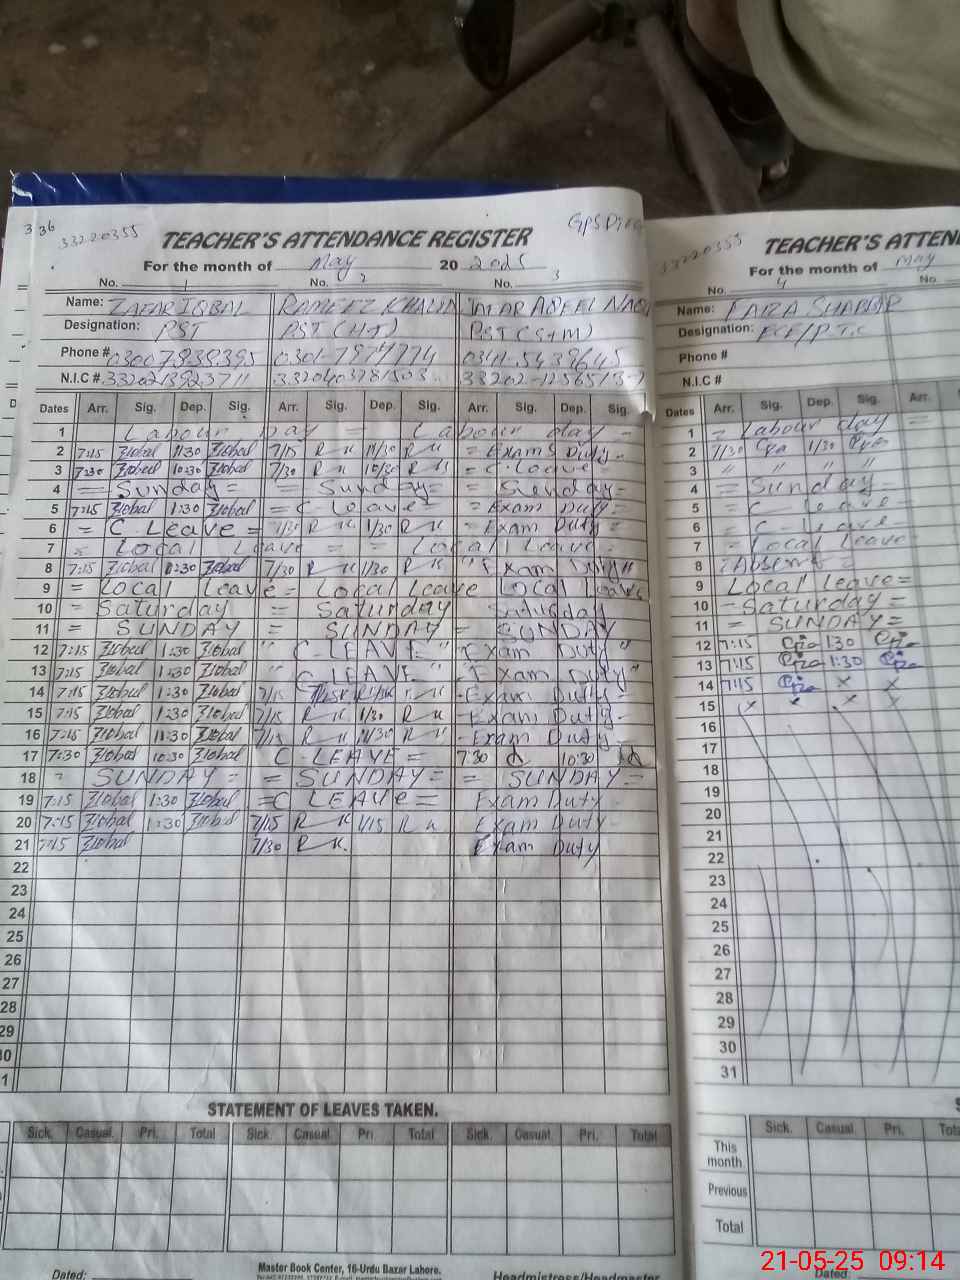 3 36 33220355 GPS
TEACHER'S ATTENDANCE REGISTER
For the month of May 20 2025
No. 1 No. 2 No. 3
Name: ZAFAR IQBAL RAMEEZ KHALID
Designation: PST PST (HT) PST (S+M)
Phone # 03007939395 0301-7974774 0341-5439645
N.I.C #
Dates Arr. Sig. Dep. Sig. Arr. Sig. Dep. Sig. Arr. Sig. Dep. Sig.
1 Labour Day = Labour day =
2 7:15 ZIqbal 11:30 ZIqbal 7/15 11/30 = Exams Duty =
3 7:30 ZIqbal 10:30 ZIqbal 7/30 10/30 = C. Leave =
4 = Sunday = = Sunday = = Sunday =
5 7:15 ZIqbal 1:30 ZIqbal = C Leave = = Exam Duty =
6 = C Leave = 7/30 1/30 = Exam Duty =
7 = Local Leave = = Local Leave =
8 7:15 ZIqbal 1:30 ZIqbal 7/30 1/30 " Exam Duty "
9 = Local Leave = Local Leave Local Leave
10 = Saturday = Saturday Saturday
11 = SUNDAY = SUNDAY = SUNDAY
12 7:15 ZIqbal 1:30 ZIqbal " C-LEAVE " Exam Duty "
13 7:15 ZIqbal 1:30 ZIqbal " C LEAVE " Exam Duty "
14 7:15 ZIqbal 1:30 ZIqbal 7/15 - Exam Duty -
15 7:15 ZIqbal 1:30 ZIqbal 7/15 1/30 - Exam Duty -
16 7:15 ZIqbal 11:30 ZIqbal 7/15 11/30 - Exam Duty -
17 7:30 ZIqbal 10:30 ZIqbal C-LEAVE = 7:30 10:30
18 SUNDAY = = SUNDAY = = SUNDAY =
19 7:15 ZIqbal 1:30 ZIqbal = C LEAVE = Exam Duty -
20 7:15 ZIqbal 1:30 ZIqbal 7/15 1/15 Exam Duty -
21 7:15 ZIqbal 7/30 Exam Duty
22
23
24
25
26
27
28
29
30
31
STATEMENT OF LEAVES TAKEN.
Sick. Casual. Pri. Total Sick. Casual. Pri. Total Sick. Casual. Pri. Total
Master Book Center, 16-Urdu Bazar Lahore.
Dated: Headmistress/Headmaster
33220355
TEACHER'S ATTEN
For the month of May
No. 4 No.
Name:
Designation:
Phone #
N.I.C #
Dates Arr. Sig. Dep. Sig. Arr.
1 = Labour day =
2 7/30 1/30
3 " " " "
4 = Sunday =
5 = C leave
6 = C leave
7 = Local Leave
8 Absent
9 Local Leave =
10 - Saturday =
11 = SUNDAY =
12 7:15 1:30
13 7:15 1:30
14 7:15 x x
15 x x x x
16
17
18
19
20
21
22
23
24
25
26
27
28
29
30
31
Sick. Casual. Pri.
This month
Previous
Total
Dated:
21-05-25 09:14